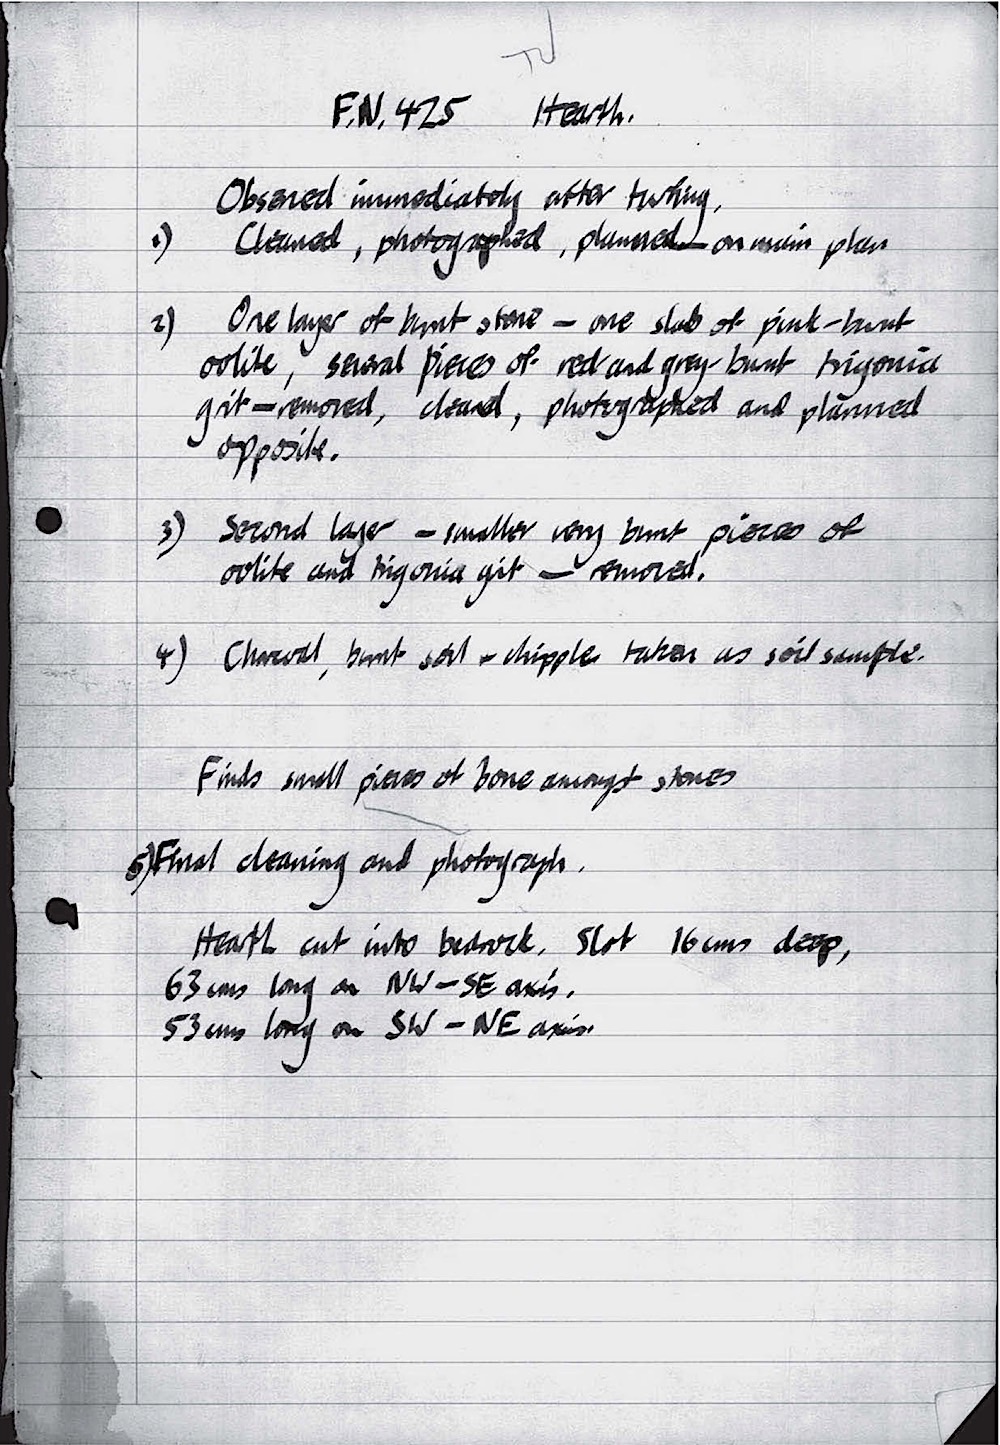 F.N. 425 Hearth.
Observed immediately after turfing.
1) Cleaned, photographed, planned - on main plan
2) One layer of burnt stone - one slab of pink-burnt
oolite, several pieces of red and grey-burnt trigonia
grit - removed, cleaned, photographed and planned
opposite.
3) Second layer - smaller very burnt pieces of
oolite and trigonia grit - removed.
4) Charcoal, burnt soil - chipple taken as soil sample.
Finds small pieces of bone amongst stones
5) Final cleaning and photograph.
Hearth cut into bedrock. Slot 16 cms deep,
63 cms long on NW-SE axis.
53 cms long on SW - NE axis.